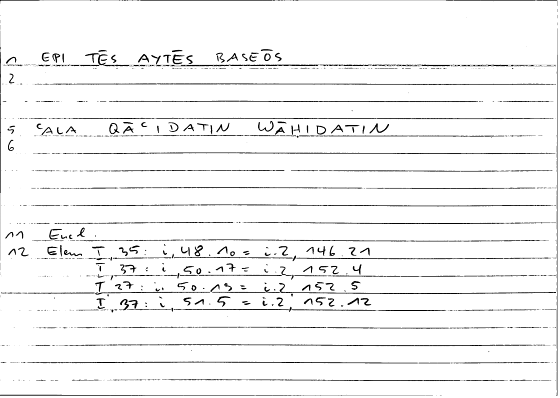 1 EPI TĒS AYTĒS BASEŌS
2.
5 ʿALA QĀʿIDATIN WĀḤIDATIN
6
11 Eucl.
12 Elem I, 35: i, 48.10 = i.2, 146.21
I, 37: i, 50.17 = i.2, 152.4
I 37: i. 50.19 = i.2, 152.5
I, 37: i, 51.5 = i.2, 152.12